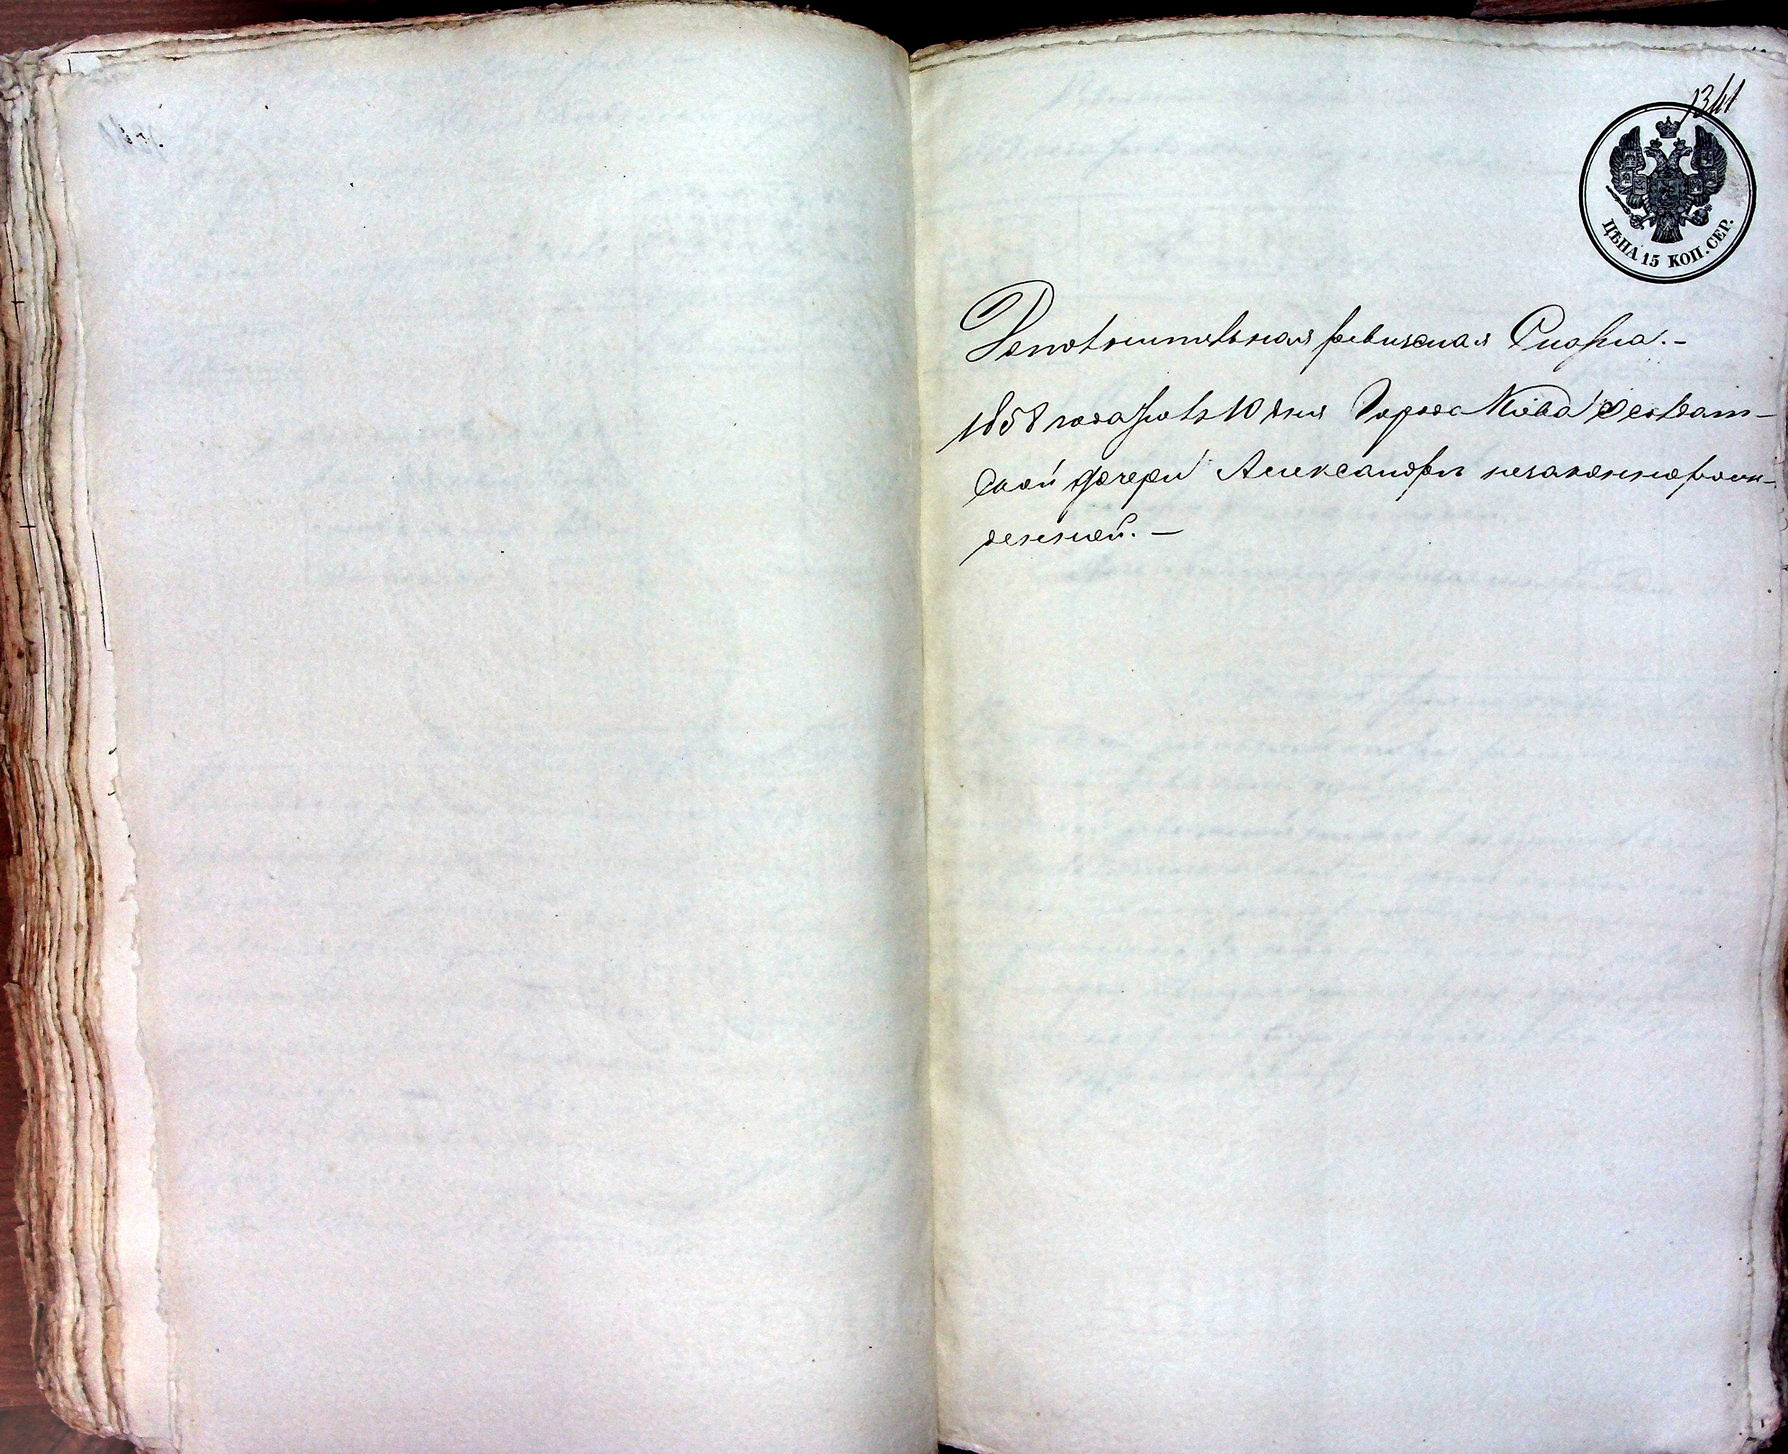 1341
ЦѢНА 15 КОП. СЕР.
Дополнительная ревизская Сказка.-
1858 года Июля 10 дня Города Киева Солдат-
ской дочери Александры незаконнорож-
денной. —